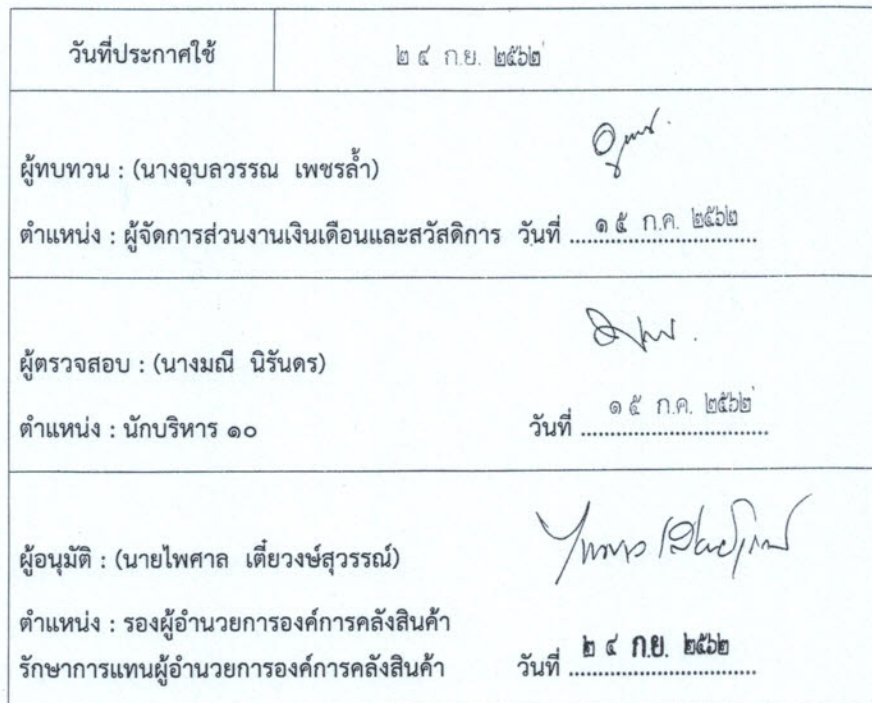 วันที่ประกาศใช้ ๒ ๔ ก.ย. ๒๕๖๒
ผู้ทบทวน : (นางอุบลวรรณ เพชรล้ำ)
ตำแหน่ง : ผู้จัดการส่วนงานเงินเดือนและสวัสดิการ วันที่ ๑ ๕ ก.ค. ๒๕๖๒
ผู้ตรวจสอบ : (นางมณี นิรันดร)
ตำแหน่ง : นักบริหาร ๑๐ วันที่ ๑ ๕ ก.ค. ๒๕๖๒
ผู้อนุมัติ : (นายไพศาล เตี๋ยวงษ์สุวรรณ์)
ตำแหน่ง : รองผู้อำนวยการองค์การคลังสินค้า
รักษาการแทนผู้อำนวยการองค์การคลังสินค้า วันที่ ๒ ๔ ก.ย. ๒๕๖๒